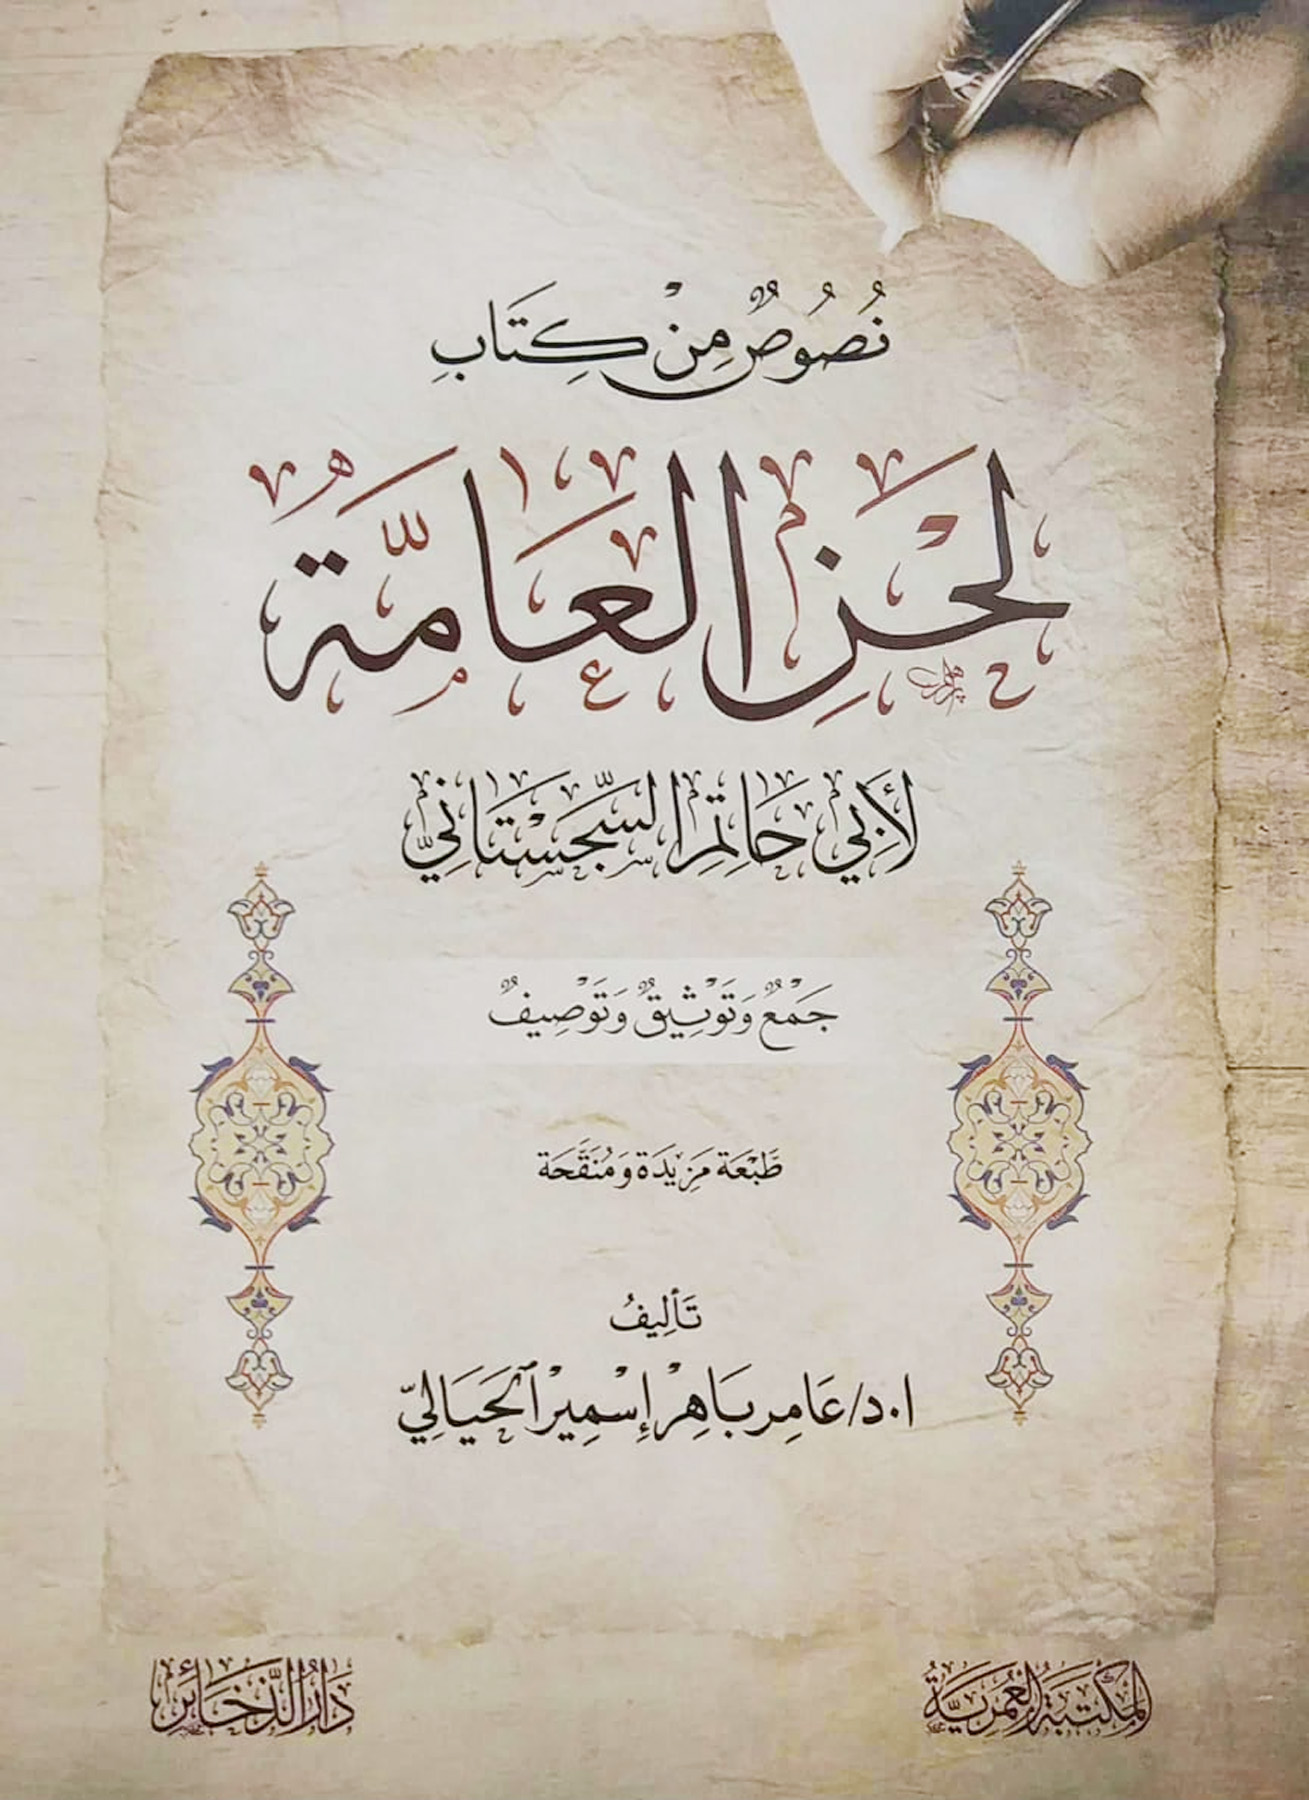 نُصُوصٌ مِنْ كِتَابِ
لَحْنِ العَامَّةِ
لِأَبِي حَاتِمِ السِّجِسْتَانِيِّ
جَمْعٌ وَتَوْثِيقٌ وَتَوْصِيفٌ
طَبْعَة مَزِيدَة وَمُنَقَّحَة
تَأْلِيفُ
ا.د/عَامِر بَاهِرْ إِسْمِيرْ الْحَيَالِيّ
المَكْتَبَةُ العُمَرِيَّةُ
دَارُ الذَّخَائِرِ